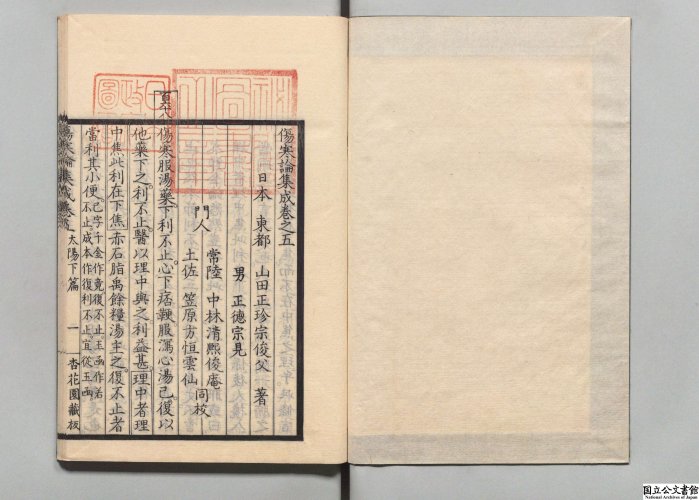 傷寒論集成卷之五
日本 東都 山田正珍宗俊父 著
男 正德宗見
門人
常陸 中林清熙俊庵
土佐 笠原方恒雲仙
同校
傷寒服湯藥下利不止心下痞鞕服瀉心湯已復以
他藥下之利不止醫以理中與之利益甚理中者理
中焦此利在下焦赤石脂禹餘糧湯主之復不止者
當利其小便
己字千金作竟復不止玉函作若
不止成本作復利不止宜從玉函
傷寒論集成卷五
太陽下篇
一
杏花園藏板
国立公文書館
National Archives of Japan